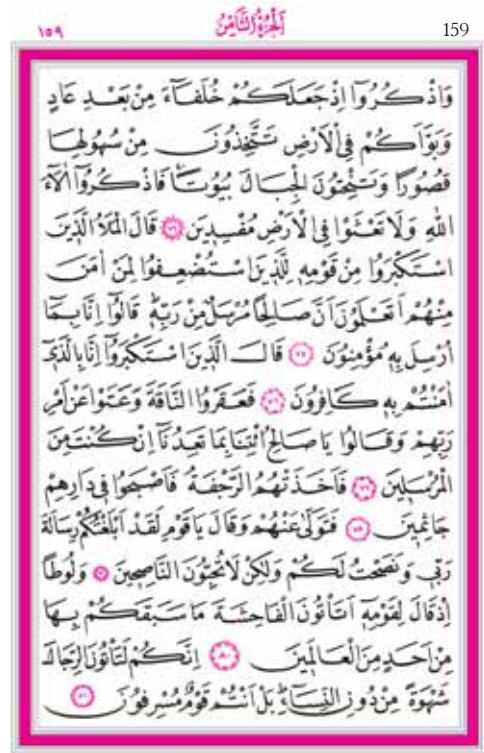 159 اَلْجُزْءُ الثَّامِنُ ١٥٩
وَاذْكُرُٓوا اِذْ جَعَلَكُمْ خُلَفَٓاءَ مِنْ بَعْدِ عَادٍ
وَبَوَّاَكُمْ فِي الْاَرْضِ تَتَّخِذُونَ مِنْ سُهُولِهَا
قُصُورًا وَتَنْحِتُونَ الْجِبَالَ بُيُوتًاۚ فَاذْكُرُٓوا اٰلَٓاءَ
اللّٰهِ وَلَا تَعْثَوْا فِي الْاَرْضِ مُفْسِدِينَ ﴿٧٤﴾ قَالَ الْمَلَاُ الَّذِينَ
اسْتَكْبَرُوا مِنْ قَوْمِهِ لِلَّذِينَ اسْتُضْعِفُوا لِمَنْ اٰمَنَ
مِنْهُمْ اَتَعْلَمُونَ اَنَّ صَالِحًا مُرْسَلٌ مِنْ رَبِّهِۜ قَالُٓوا اِنَّا بِمَٓا
اُرْسِلَ بِهِ مُؤْمِنُونَ ﴿٧٥﴾ قَالَ الَّذِينَ اسْتَكْبَرُٓوا اِنَّا بِالَّذِٓي
اٰمَنْتُمْ بِهِ كَافِرُونَ ﴿٧٦﴾ فَعَقَرُوا النَّاقَةَ وَعَتَوْا عَنْ اَمْرِ
رَبِّهِمْ وَقَالُوا يَا صَالِحُ ائْتِنَا بِمَا تَعِدُنَٓا اِنْ كُنْتَ مِنَ
الْمُرْسَلِينَ ﴿٧٧﴾ فَاَخَذَتْهُمُ الرَّجْفَةُ فَاَصْبَحُوا فِي دَارِهِمْ
جَاثِمِينَ ﴿٧٨﴾ فَتَوَلّٰى عَنْهُمْ وَقَالَ يَا قَوْمِ لَقَدْ اَبْلَغْتُكُمْ رِسَالَةَ
رَبِّي وَنَصَحْتُ لَكُمْ وَلٰكِنْ لَا تُحِبُّونَ النَّاصِحِينَ ﴿٧٩﴾ وَلُوطًا
اِذْ قَالَ لِقَوْمِهِٓ اَتَأْتُونَ الْفَاحِشَةَ مَا سَبَقَكُمْ بِهَا
مِنْ اَحَدٍ مِنَ الْعَالَمِينَ ﴿٨٠﴾ اِنَّكُمْ لَتَأْتُونَ الرِّجَالَ
شَهْوَةً مِنْ دُونِ النِّسَٓاءِۜ بَلْ اَنْتُمْ قَوْمٌ مُسْرِفُونَ ﴿٨١﴾